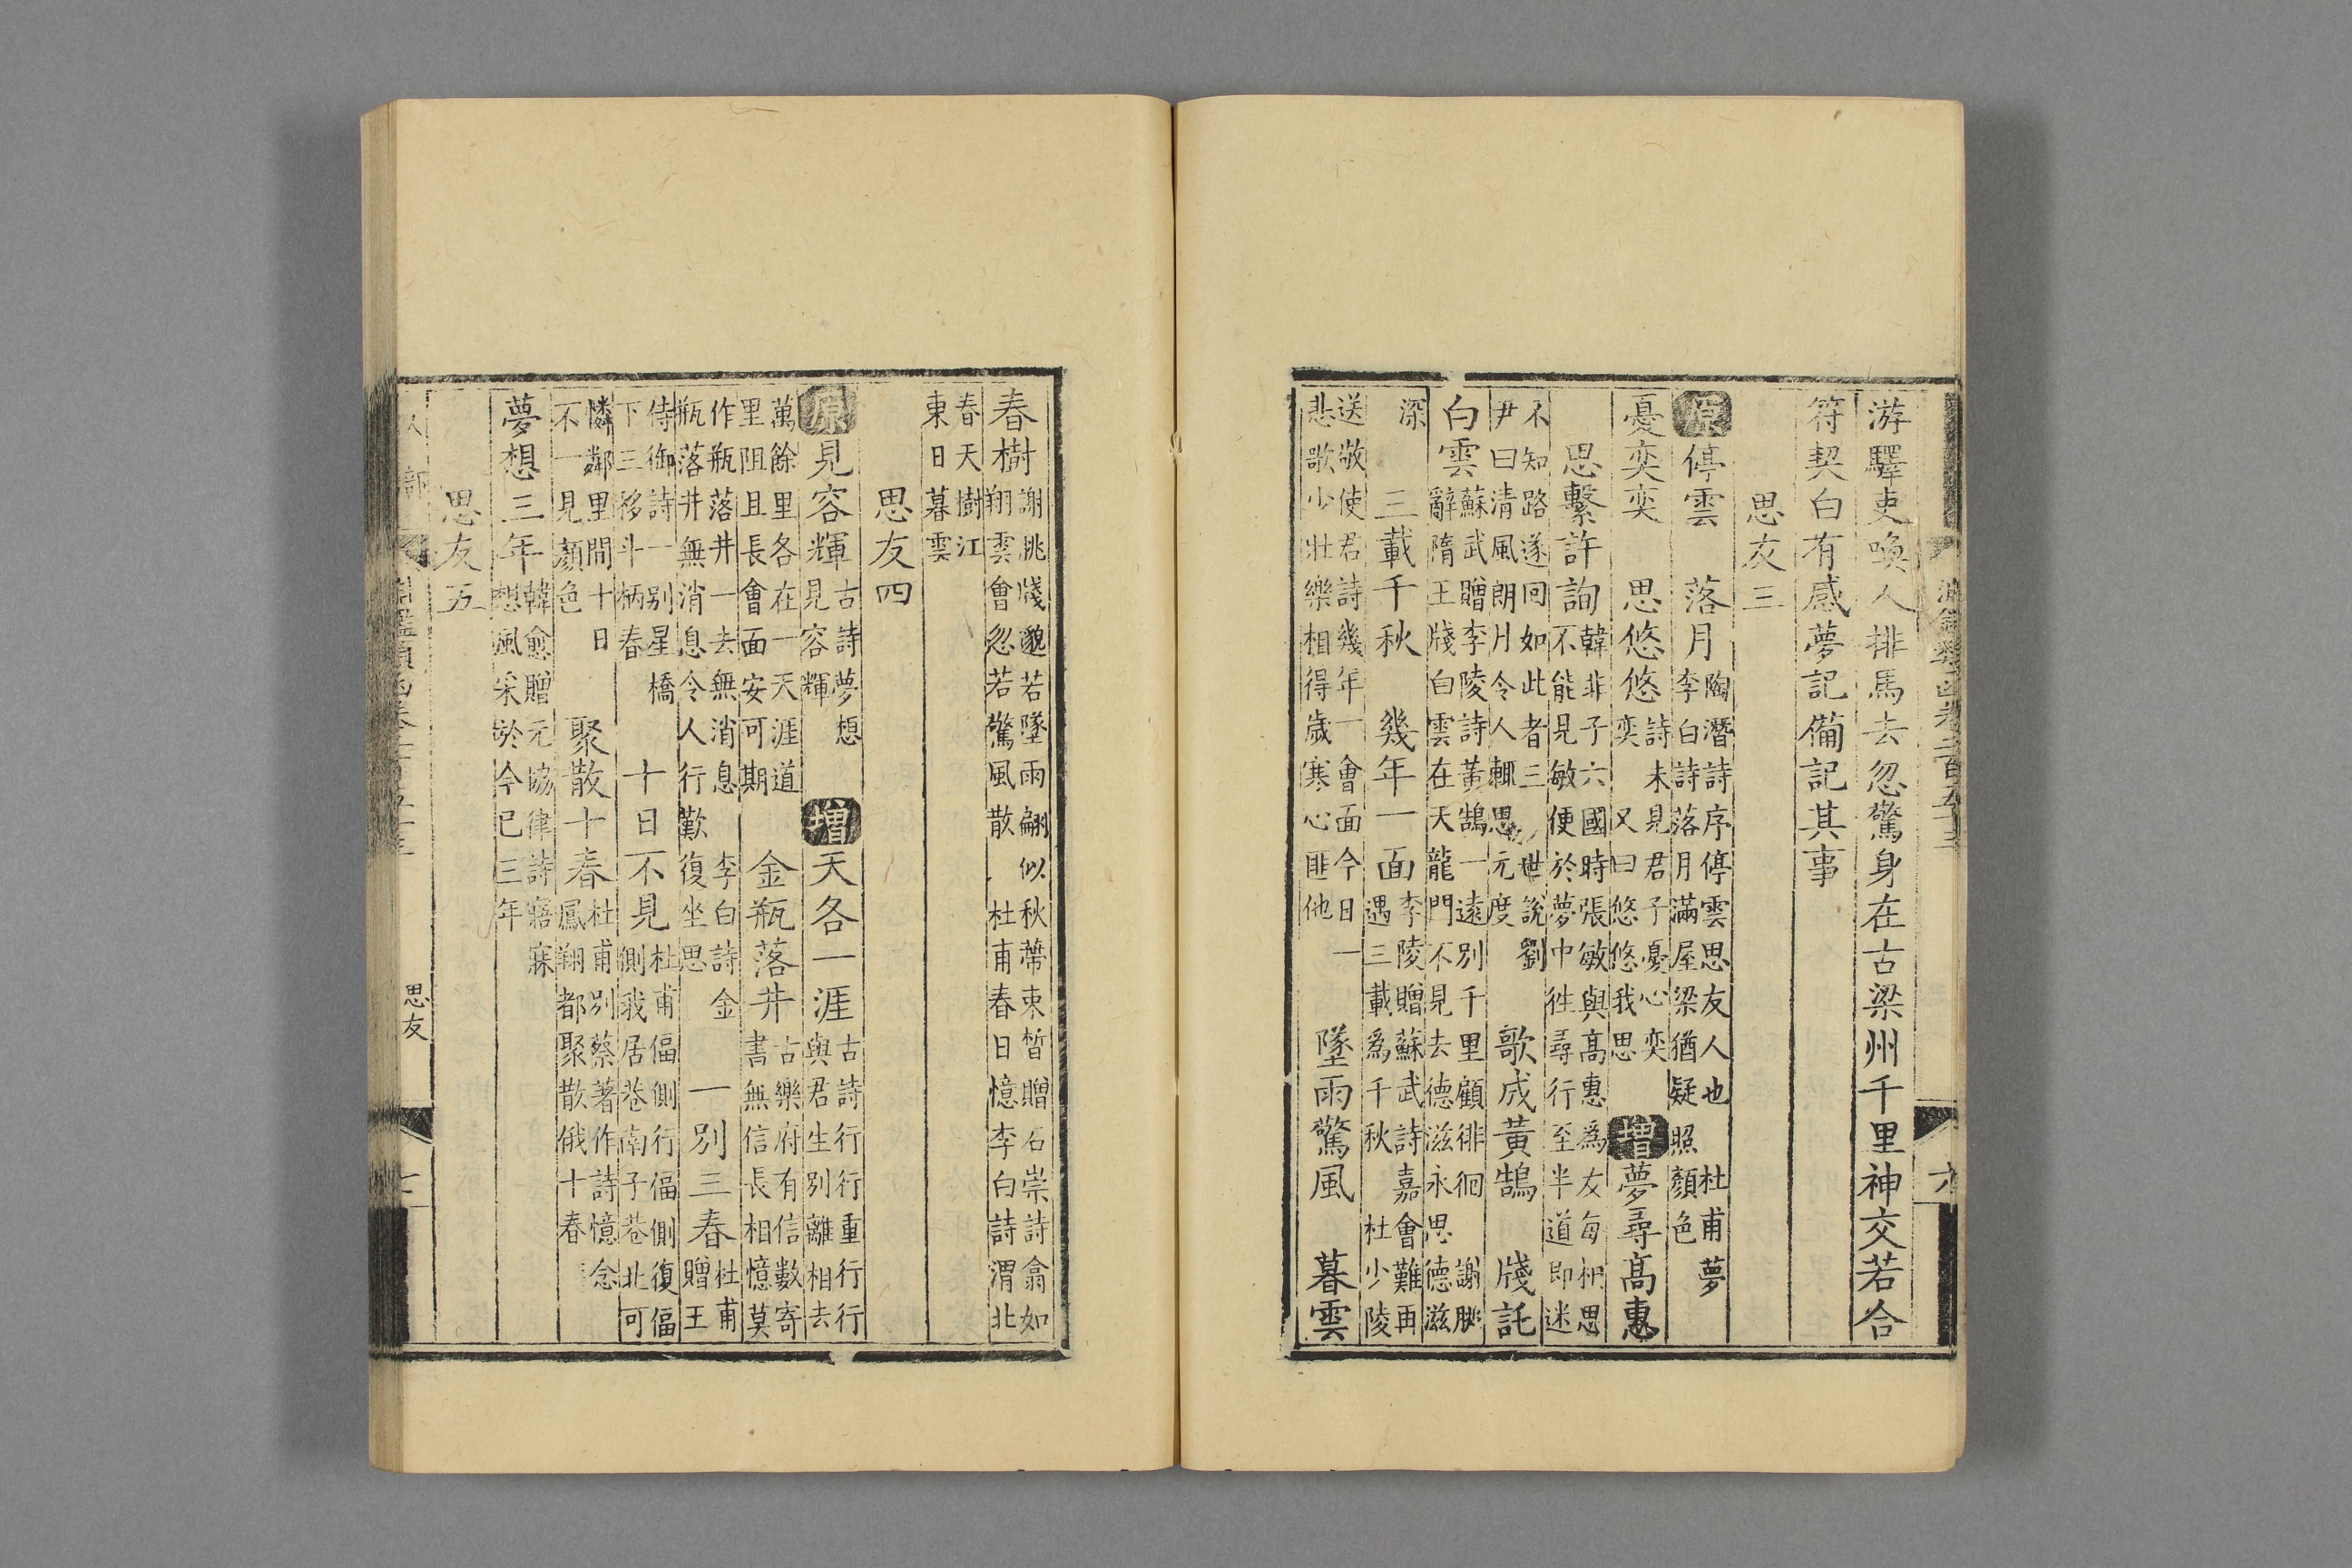 淵鑑類函卷二百五十三 六
游驛吏喚人排馬去忽驚身在古梁州千里神交若合
符契白有感夢記備記其事
思友三
原 停雲 落月 陶潛詩序停雲思友人也 杜甫夢李白詩落月滿屋梁猶疑照顏色
憂奕奕 思悠悠 詩未見君子憂心奕奕 又曰悠悠我思 增 夢尋高惠
思繫許詢 韓非子六國時張敏與高惠爲友每相思不能見敏便於夢中徃尋行至半道即迷
不知路遂回如此者三 世說劉尹曰清風朗月令人輒思元度 歌成黃鵠 牋託
白雲 蘇武贈李陵詩黃鵠一遠別千里顧徘徊 謝朓辭隋王牋白雲在天龍門不見去德滋永思德滋
深 三載千秋 幾年一面 李陵贈蘇武詩嘉會難再遇三載爲千秋 杜少陵
送敬使君詩幾年一會面今日一悲歌少壯樂相得歲寒心匪他 墜雨驚風 暮雲
春樹 謝朓牋邈若墜雨翩似秋蔕束皙贈石崇詩翕如翔雲會忽若驚風散 杜甫春日憶李白詩渭北
春天樹江東日暮雲
思友四
原 見容輝 古詩夢想見容輝 增 天各一涯 古詩行行重行行與君生別離相去
萬餘里各在一天涯道里阻且長會面安可期 金瓶落井 古樂府有信數寄書無信長相憶莫
作瓶落井一去無消息 李白詩金瓶落井無消息令人行歎復坐思 一別三春 杜甫贈王
侍御詩一別星橋下三移斗柄春 十日不見 杜甫偪側行偪側復偪側我居巷南子巷北可
憐鄰里間十日不一見顏色 聚散十春 杜甫別蔡著作詩憶念鳳翔都聚散俄十春
夢想三年 韓愈贈元協律詩寤寐想風采於今已三年
思友五
人部 淵鑑類函卷二百五十三 思友 七